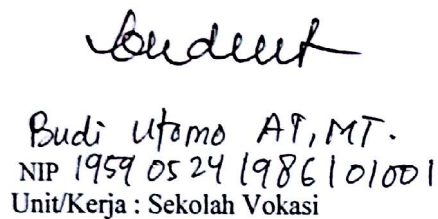 Budi Utomo AT, MT.
NIP 1959 05 24 198610 1001
Unit/Kerja : Sekolah Vokasi